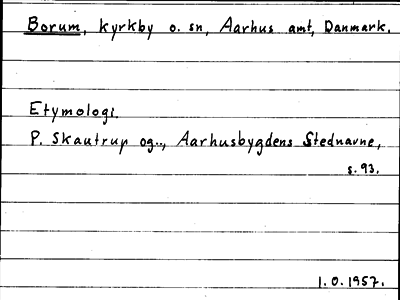 Borum, kyrkby o. sn, Aarhus amt, Danmark.
Etymologi.
P. Skautrup og.., Aarhusbygdens Stednavne,
s. 93.
1.0.1957.